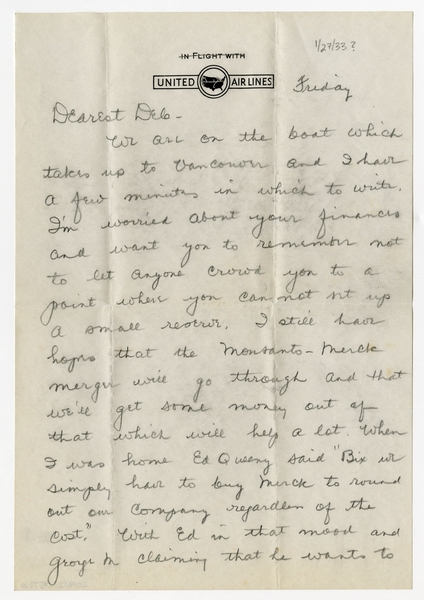 1/27/33?
IN FLIGHT WITH
UNITED AIR LINES
Friday
Dearest Deb-
We are on the boat which
takes up to Vancouver and I have
a few minutes in which to write.
I'm worried about your finances
and want you to remember not
to let anyone crowd you to a
point where you can not set up
a small reserve. I still have
hopes that the Monsanto-Merck
merger will go through and that
we'll get some money out of
that which will help a lot. When
I was home Ed Queeny said "Bix we
simply have to buy Merck to round
out our company regardless of the
cost." With Ed in that mood and
George M claiming that he wants to